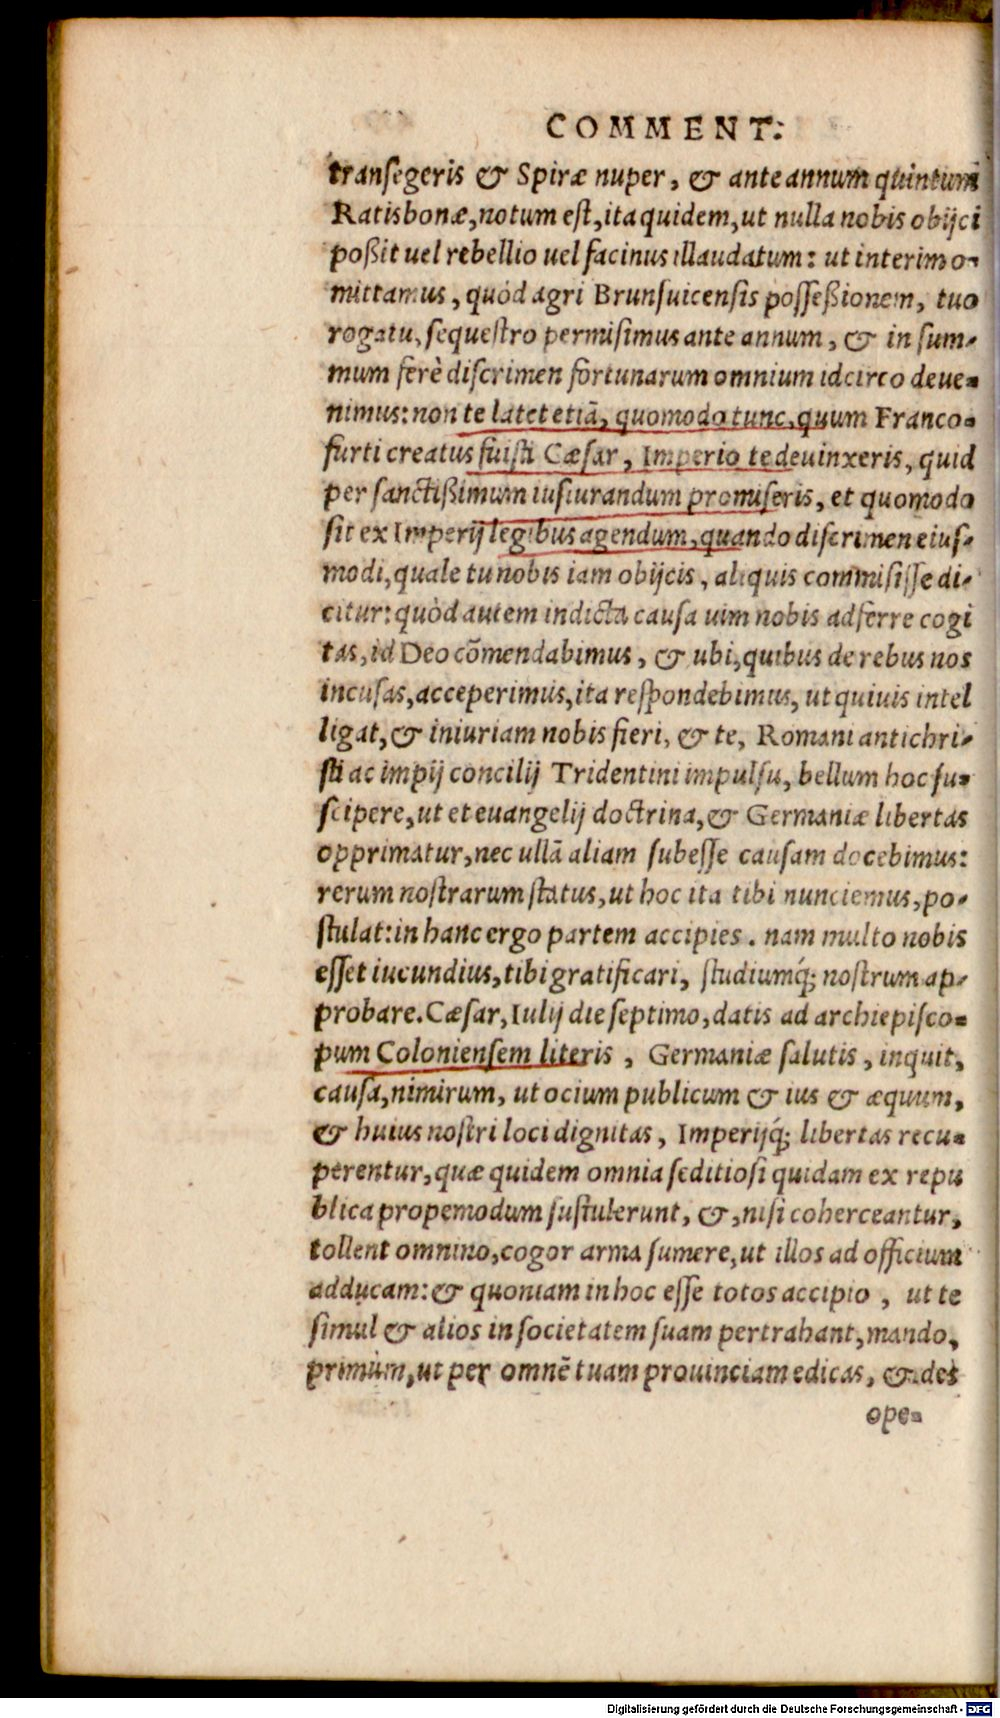 COMMENT:
transegeris & Spiræ nuper, & ante annum quintum
Ratisbonæ, notum est, ita quidem, ut nulla nobis obijci
poßit uel rebellio uel facinus illaudatum: ut interim o-
mittamus, quòd agri Brunsuicensis posseßionem, tuo
rogatu, sequestro permisimus ante annum, & in sum-
mum ferè discrimen fortunarum omnium idcirco deue-
nimus: non te latet etiã, quomodo tunc, quum Franco-
furti creatus fuisti Cæsar, Imperio te deuinxeris, quid
per sanctißimum iusiurandum promiseris, et quomodo
sit ex Imperij legibus agendum, quando discrimen eius-
modi, quale tu nobis iam obijcis, aliquis commisisse di-
citur: quòd autem indicta causa uim nobis adferre cogi
tas, id Deo cõmendabimus, & ubi, quibus de rebus nos
incusas, acceperimus, ita respondebimus, ut quiuis intel
ligat, & iniuriam nobis fieri, & te, Romani antichri-
sti ac impij concilij Tridentini impulsu, bellum hoc su-
scipere, ut et euangelij doctrina, & Germaniæ libertas
opprimatur, nec ullã aliam subesse causam docebimus:
rerum nostrarum status, ut hoc ita tibi nunciemus, po-
stulat: in hanc ergo partem accipies. nam multo nobis
esset iucundius, tibi gratificari, studiumq́; nostrum ap-
probare. Cæsar, Iulij die septimo, datis ad archiepisco-
pum Coloniensem literis, Germaniæ salutis, inquit,
causa, nimirum, ut ocium publicum & ius & æquum,
& huius nostri loci dignitas, Imperijq́; libertas recu-
perentur, quæ quidem omnia seditiosi quidam ex repu
blica propemodum sustulerunt, &, nisi coherceantur,
tollent omnino, cogor arma sumere, ut illos ad officium
adducam: & quoniam in hoc esse totos accipio, ut te
simul & alios in societatem suam pertrahant, mando,
primùm, ut per omnẽ tuam prouinciam edicas, & des
ope-
Digitalisierung gefördert durch die Deutsche Forschungsgemeinschaft - DFG